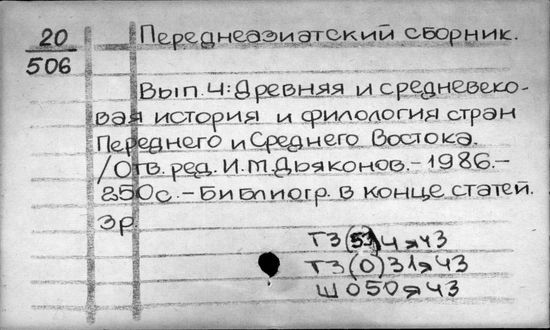 20
506
Переднеазиатский сборник.
Вып.4: Древняя и средневеко-
вая история и филология стран
Переднего и Среднего Востока.
/Отв. ред. И.М.Дьяконов.-1986.-
250с.-Библиогр. в конце статей.
3р.
Т3(53)4я43
Т3(0)31я43
Ш050я43